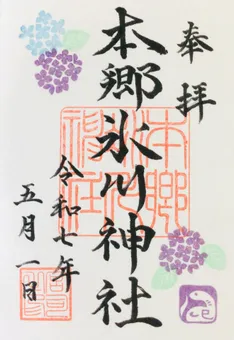 奉拝
本郷氷川神社
令和七年
五月一日
本郷氷川神社
巳